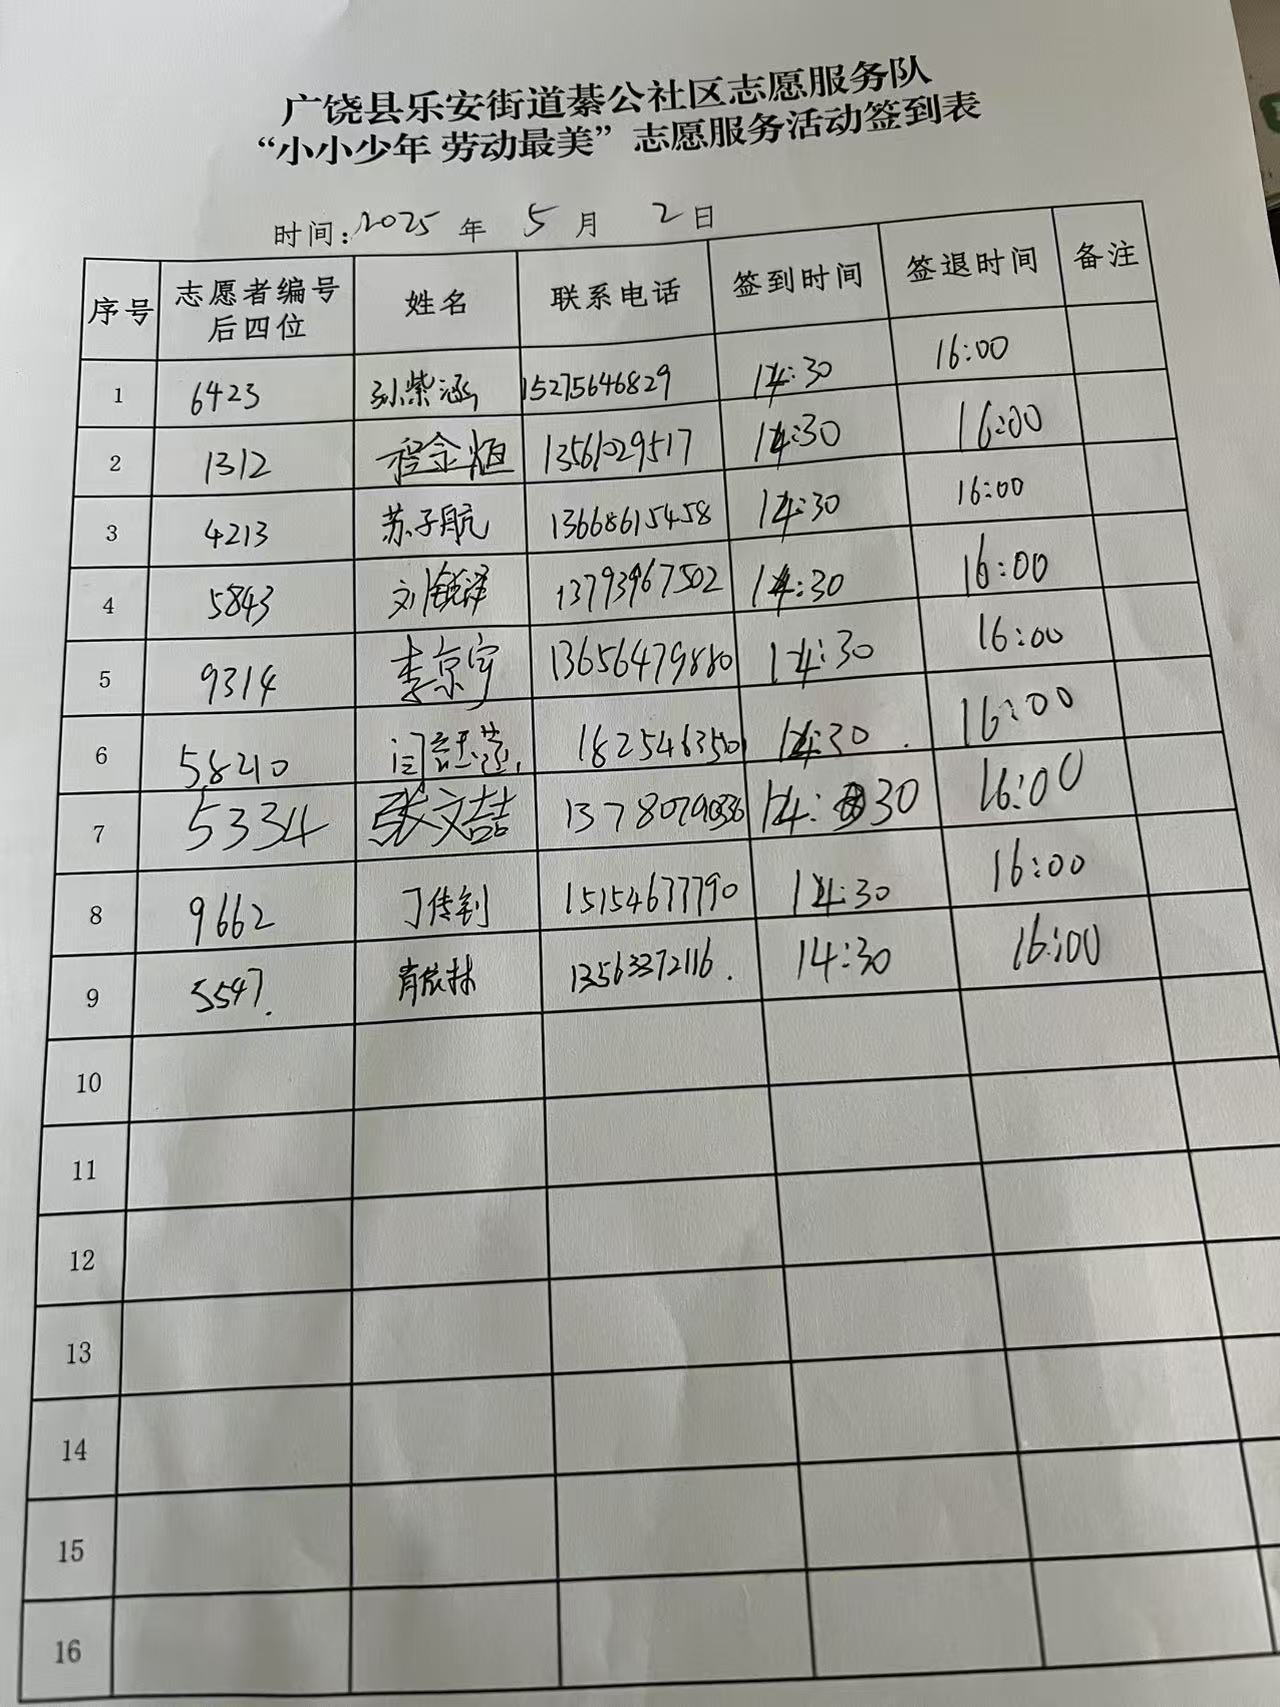 广饶县乐安街道綦公社区志愿服务队
“小小少年 劳动最美”志愿服务活动签到表
时间:2025 年 5 月 2 日
序号 志愿者编号后四位 姓名 联系电话 签到时间 签退时间 备注
1 6423 孙紫涵 15275646829 14:30 16:00
2 1312 程金烜 13561029517 14:30 16:00
3 4213 苏子航 13668615458 14:30 16:00
4 5843 刘 13793967502 14:30 16:00
5 9314 李京宇 13656479880 14:30 16:00
6 58210 14:30 16:00
7 5334 张文喆 14:30 16:00
8 9662 丁传钊 15154677790 14:30 16:00
9 5547. 肖依林 13563372116. 14:30 16:00
10
11
12
13
14
15
16